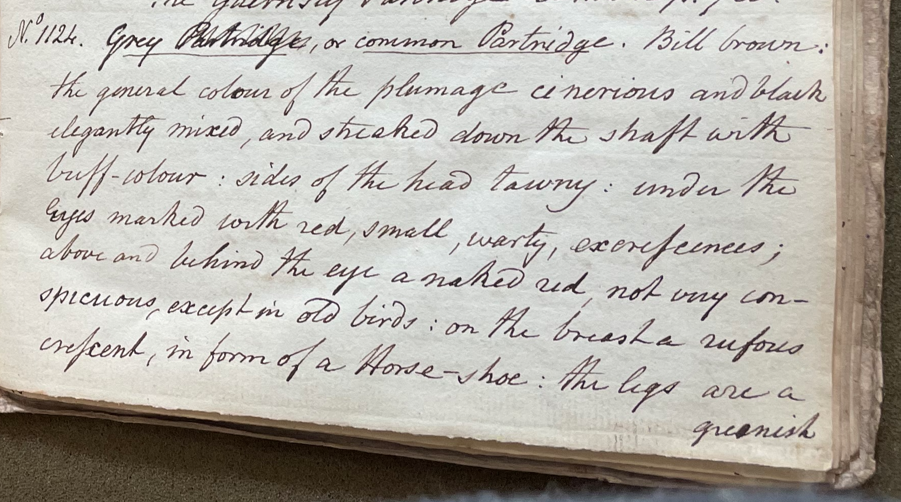 the Guernsey Partridge
No. 1124. Grey Partridge, or common Partridge. Bill brown:
the general colour of the plumage cinerious and black
elegantly mixed, and streaked down the shaft with
buff-colour: sides of the head tawny: under the
Eyes marked with red, small, warty, excreſcences;
above and behind the eye a naked red, not very con-
spicuous, except in old birds: on the breast a rufous
creſcent, in form of a Horse-shoe: the legs are a
greenish